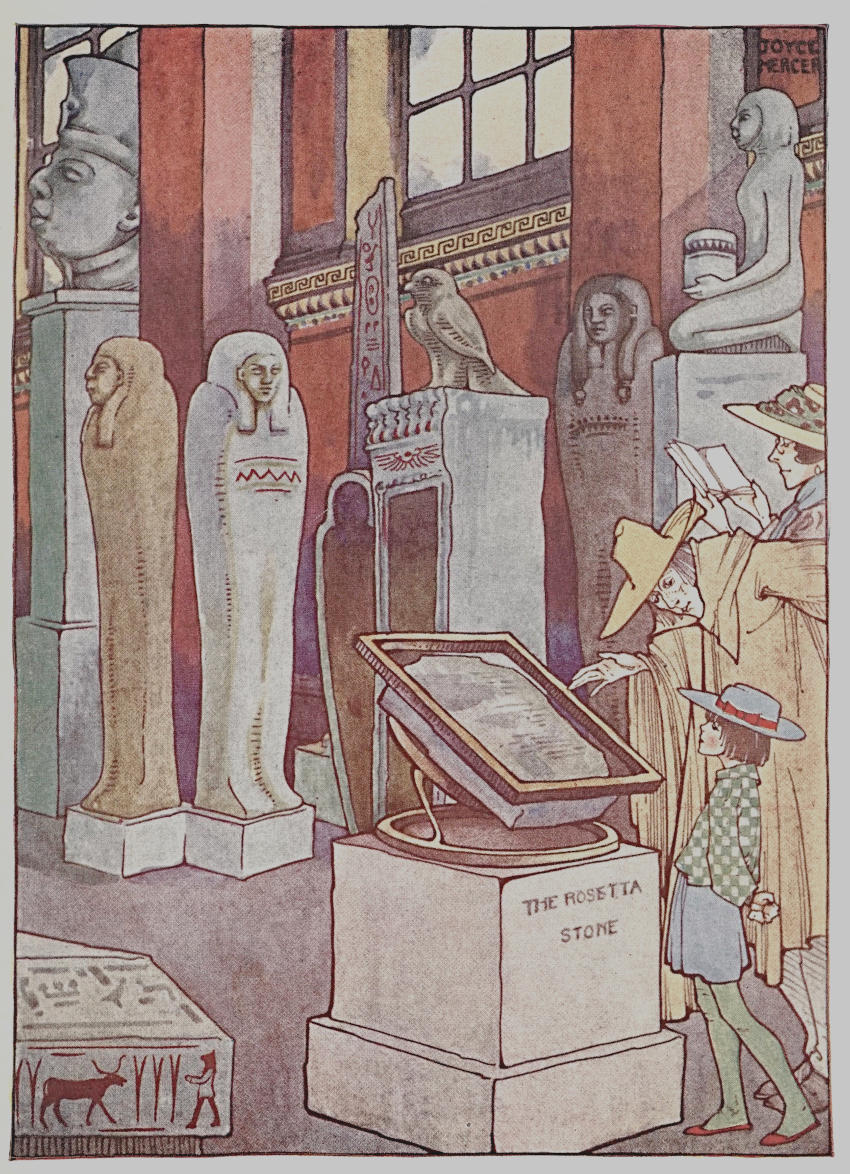 JOYCE
MERCER
THE ROSETTA
STONE